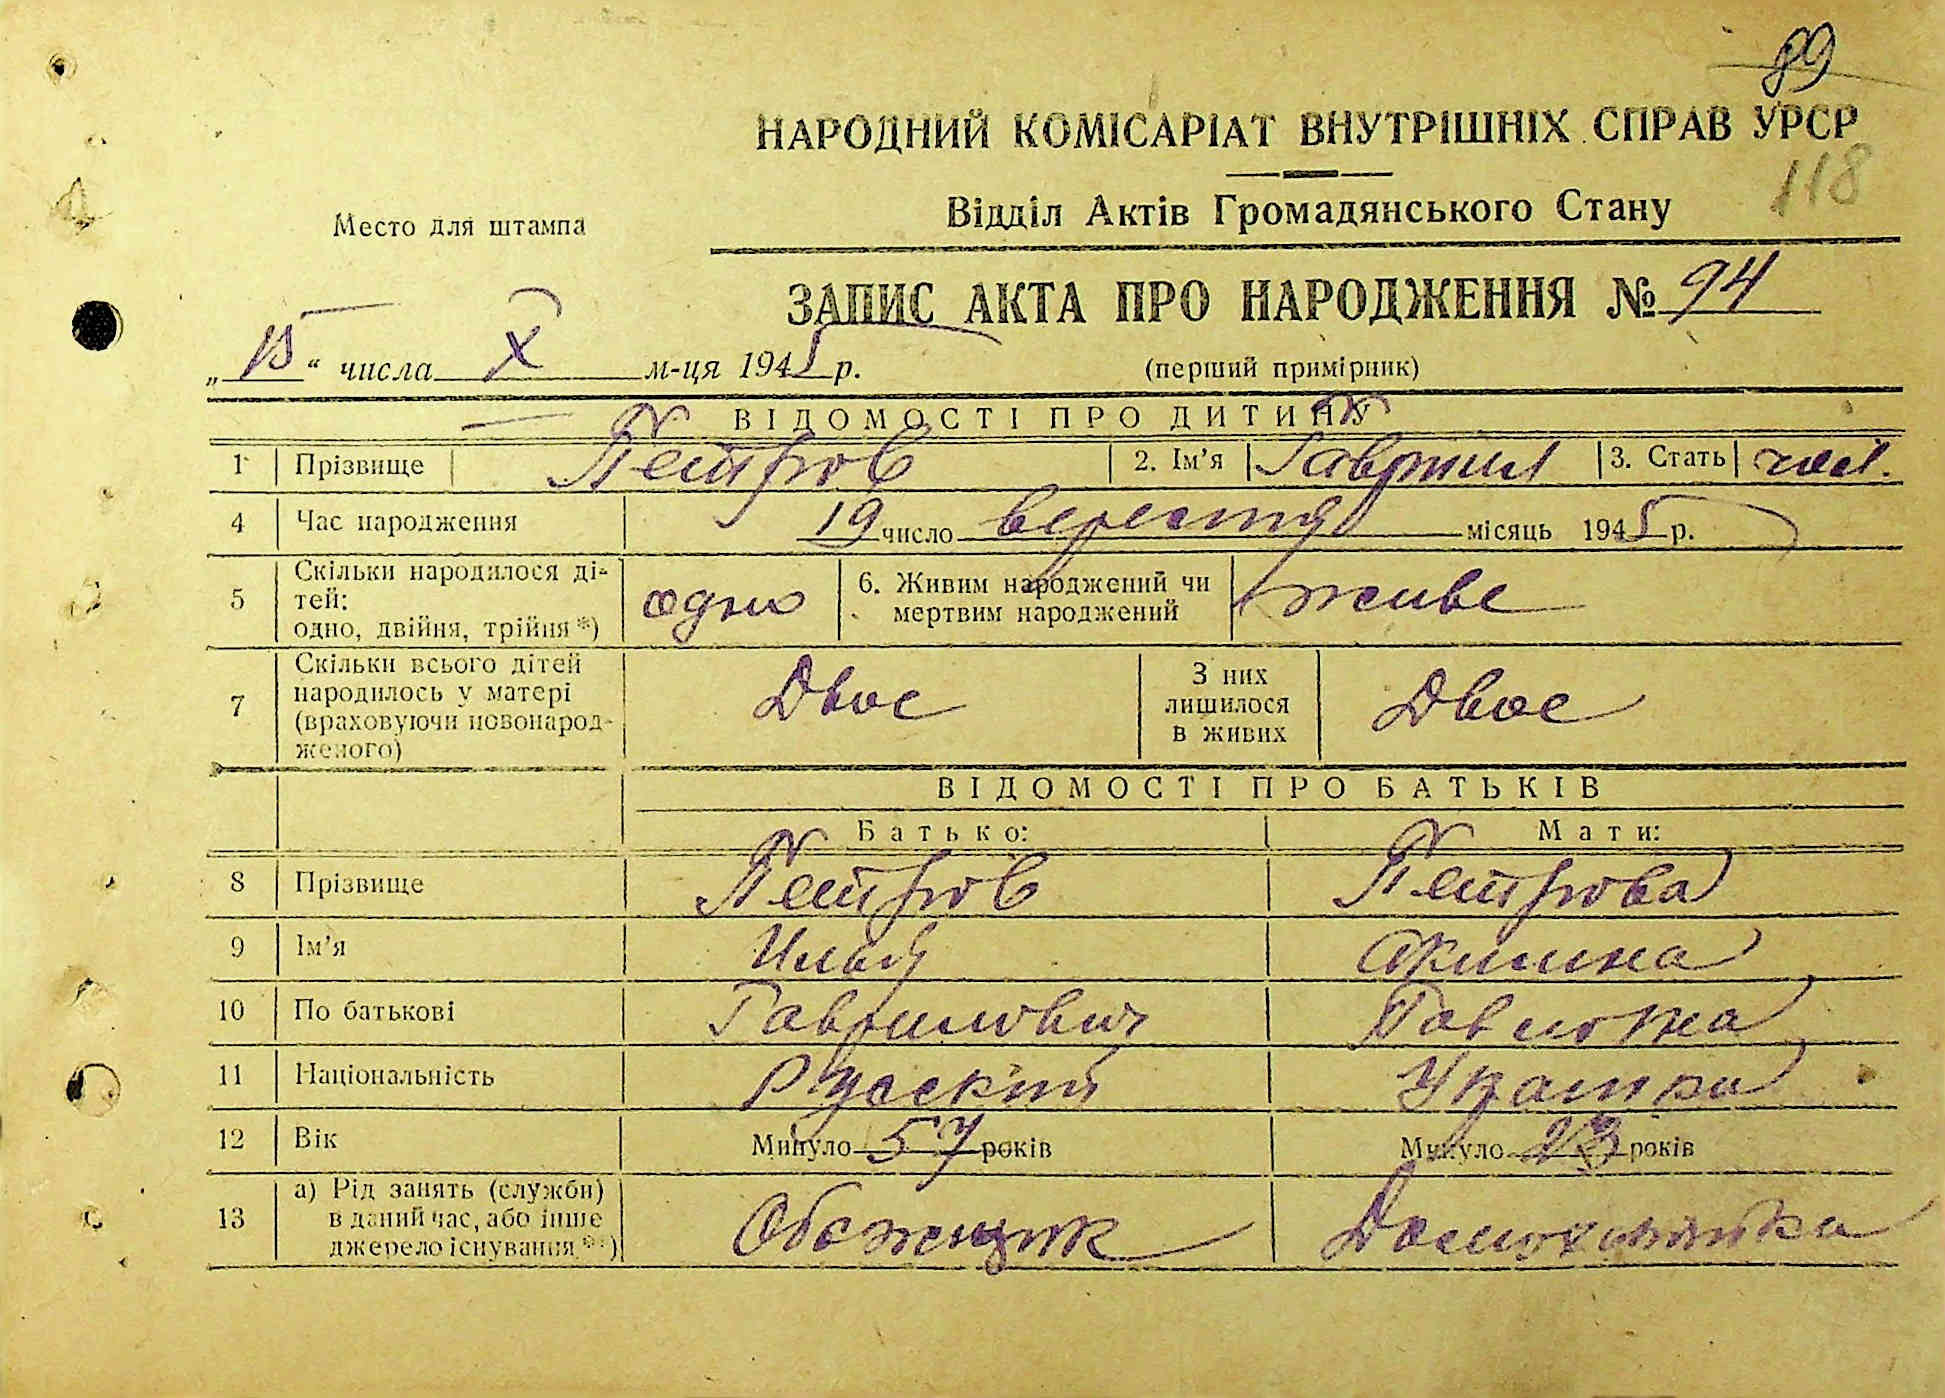 89
НАРОДНИЙ КОМІСАРІАТ ВНУТРІШНІХ СПРАВ УРСР
118
Место для штампа
Відділ Актів Громадянського Стану
ЗАПИС АКТА ПРО НАРОДЖЕННЯ № 94
„15“ числа X м-ця 1945 р.
(перший примірник)
ВІДОМОСТІ ПРО ДИТИНУ
1 Прізвище Петров 2. Ім'я Гавриил 3. Стать чол.
4 Час народження 19 число вересня місяць 1945 р.
5 Скільки народилося ді-
тей:
одно, двійня, трійня *)
одно
6. Живим народжений чи
мертвим народжений
живе
7 Скільки всього дітей
народилось у матері
(враховуючи новонарод-
женого)
Двое
З них
лишилося
в живих
Двое
ВІДОМОСТІ ПРО БАТЬКІВ
Батько: Мати:
8 Прізвище Петров Петрова
9 Ім'я Илья Акилина
10 По батькові Гаврилович Павловна
11 Національність Руский Украінка
12 Вік Минуло 57 років Минуло 23 років
13 а) Рід занять (служби)
в даний час, або інше
джерело існування **)
Обєжчик Домохозяйка